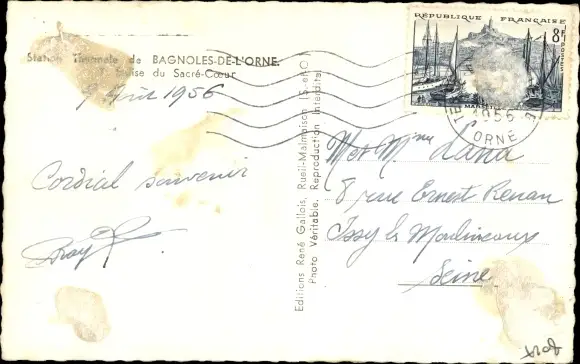 Station Thermale de BAGNOLES-DE-L'ORNE
Église du Sacré-Cœur
9 Août 1956
Cordial souvenir
Editions René Gallois, Rueil-Malmaison (S.-et-O.)
Photo Véritable. Reproduction Interdite
RÉPUBLIQUE FRANÇAISE
8F
POSTES
1956
ORNE
M et Mme Lana
8 rue Ernest Renan
Issy les Moulineaux
Seine